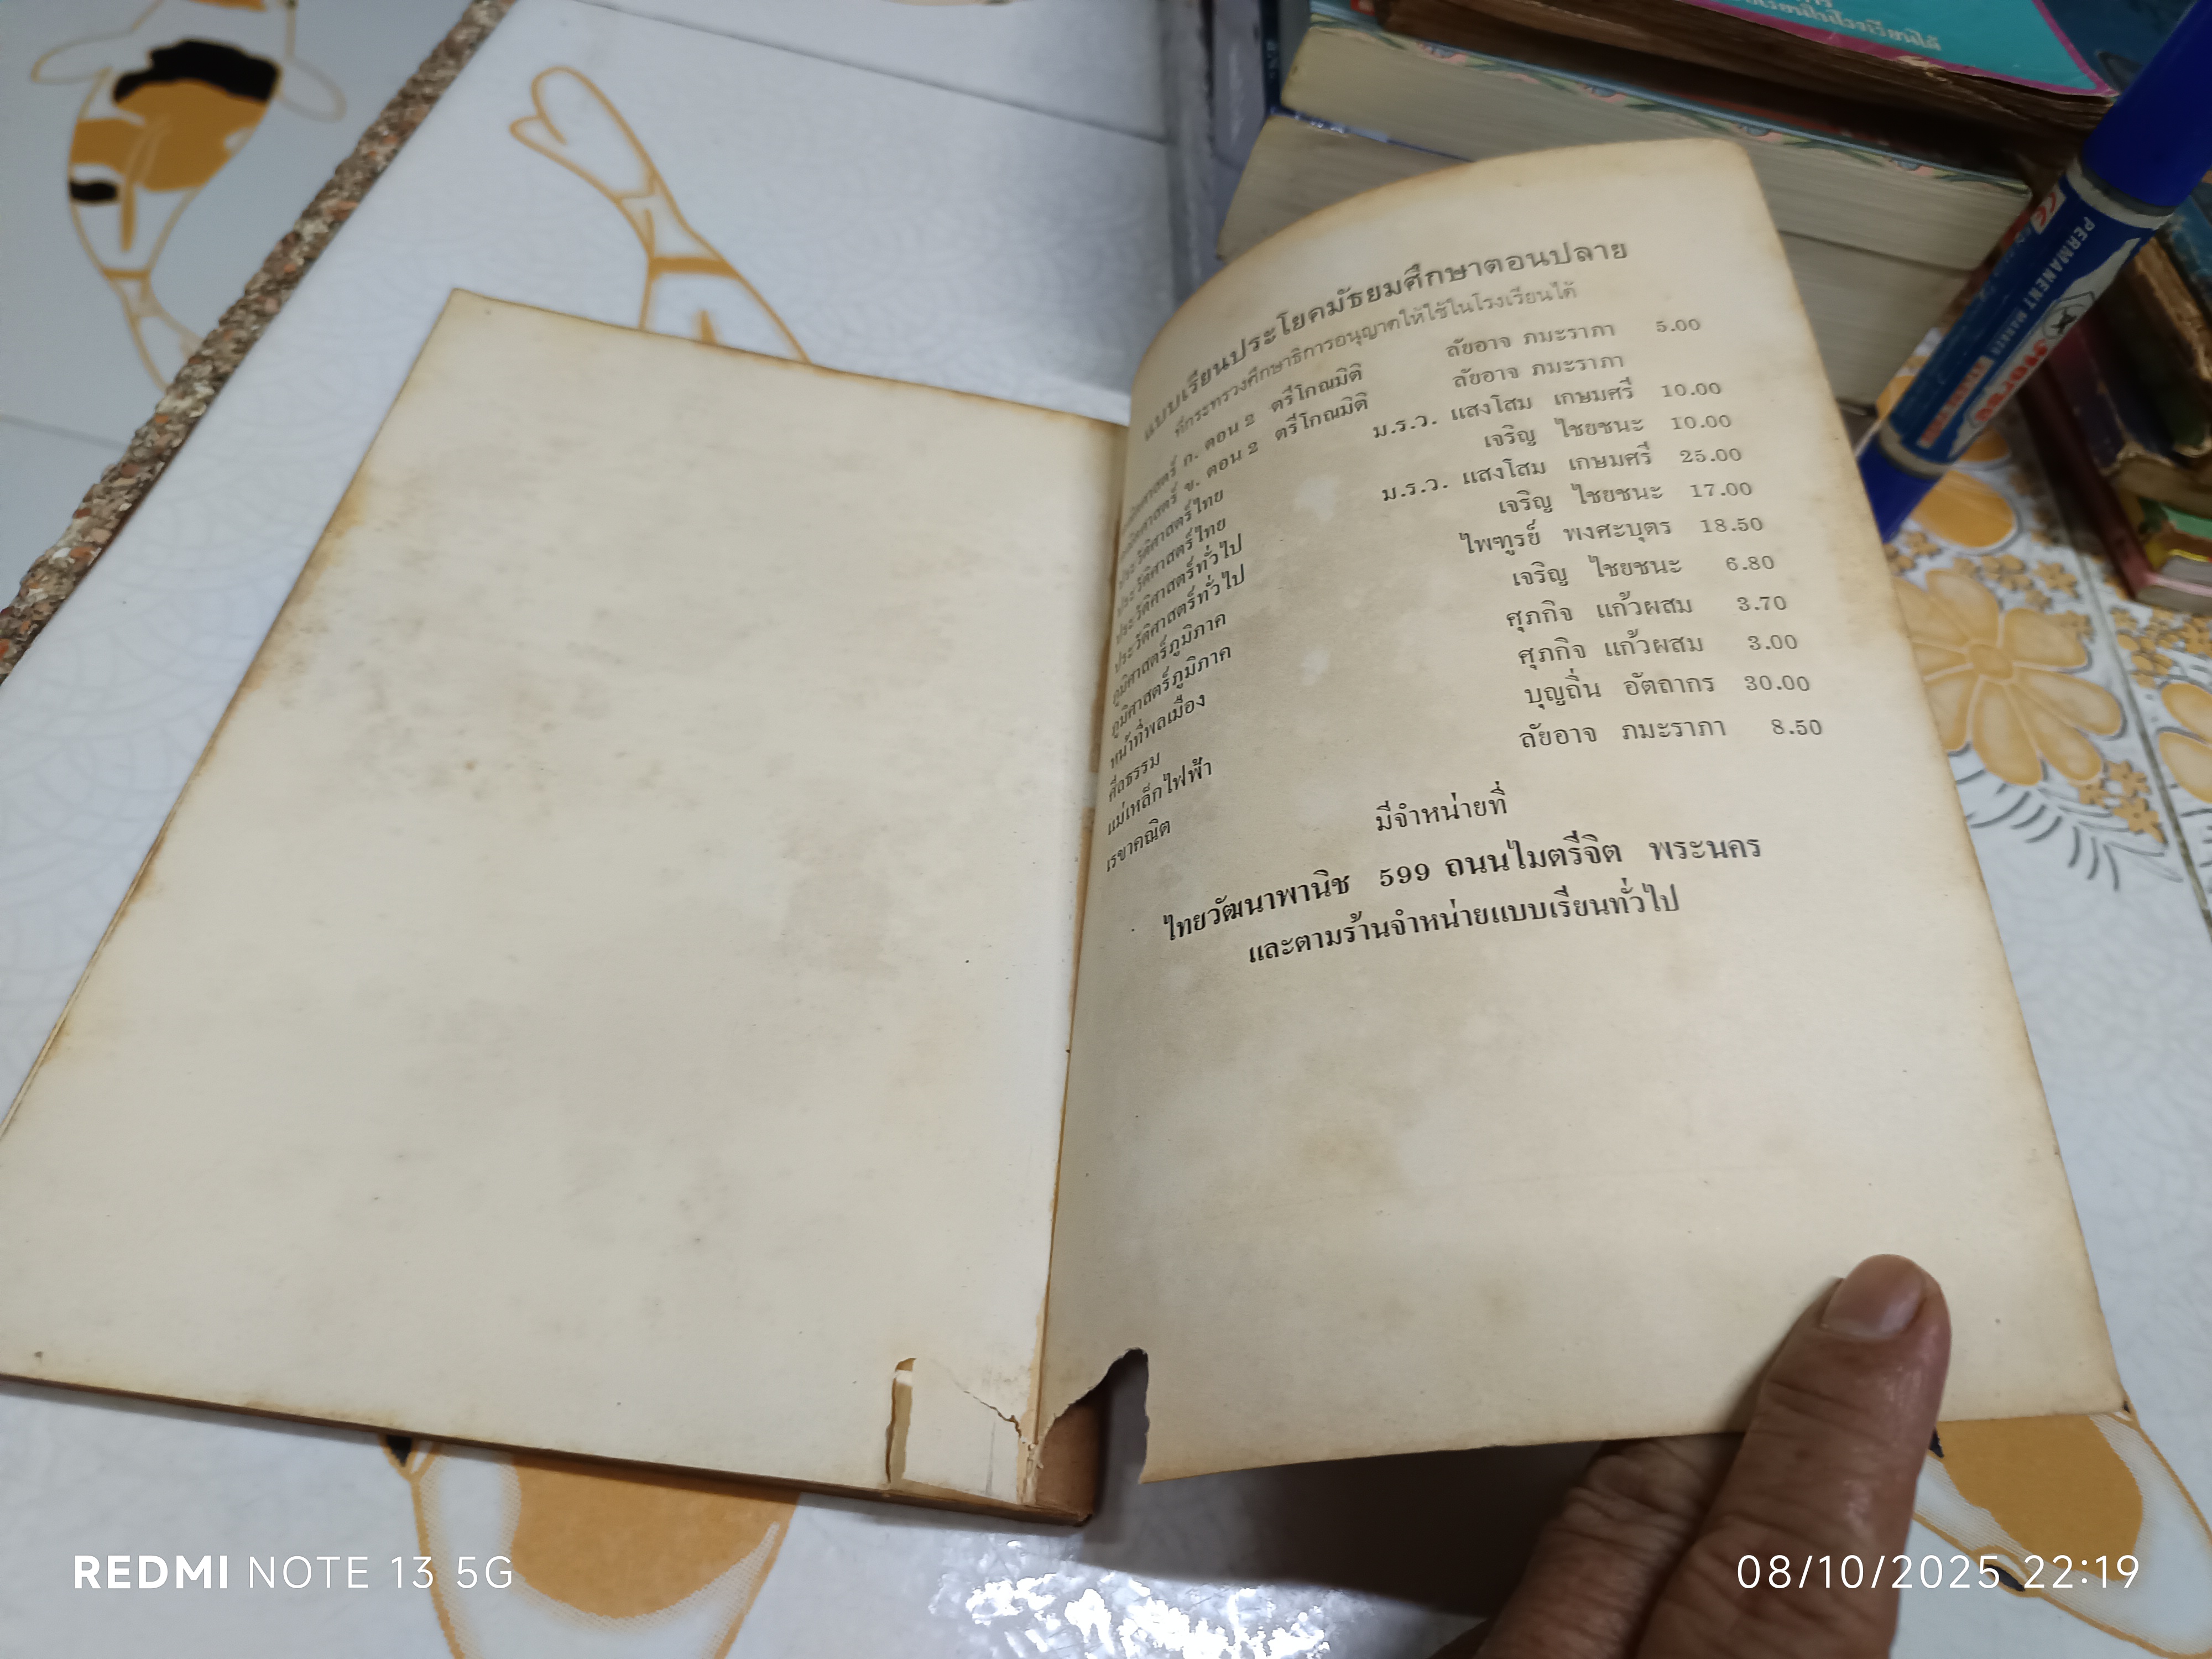 แบบเรียนประโยคมัธยมศึกษาตอนปลาย
ที่กระทรวงศึกษาธิการอนุญาตให้ใช้ในโรงเรียนได้
คณิตศาสตร์ ก. ตอน 2 ตรีโกณมิติ ลัยอาจ ภมะราภา 5.00
คณิตศาสตร์ ข. ตอน 2 ตรีโกณมิติ ลัยอาจ ภมะราภา
ประวัติศาสตร์ไทย ม.ร.ว. แสงโสม เกษมศรี 10.00
ประวัติศาสตร์ไทย เจริญ ไชยชนะ 10.00
ประวัติศาสตร์ทั่วไป ม.ร.ว. แสงโสม เกษมศรี 25.00
ประวัติศาสตร์ทั่วไป เจริญ ไชยชนะ 17.00
ภูมิศาสตร์ภูมิภาค ไพฑูรย์ พงศะบุตร 18.50
ภูมิศาสตร์ภูมิภาค เจริญ ไชยชนะ 6.80
หน้าที่พลเมือง ศุภกิจ แก้วผสม 3.70
ศีลธรรม ศุภกิจ แก้วผสม 3.00
แม่เหล็กไฟฟ้า บุญถิ่น อัตถากร 30.00
เรขาคณิต ลัยอาจ ภมะราภา 8.50
มีจำหน่ายที่
ไทยวัฒนาพานิช 599 ถนนไมตรีจิต พระนคร
และตามร้านจำหน่ายแบบเรียนทั่วไป
PERMANENT MARKER
REDMI NOTE 13 5G
08/10/2025 22:19